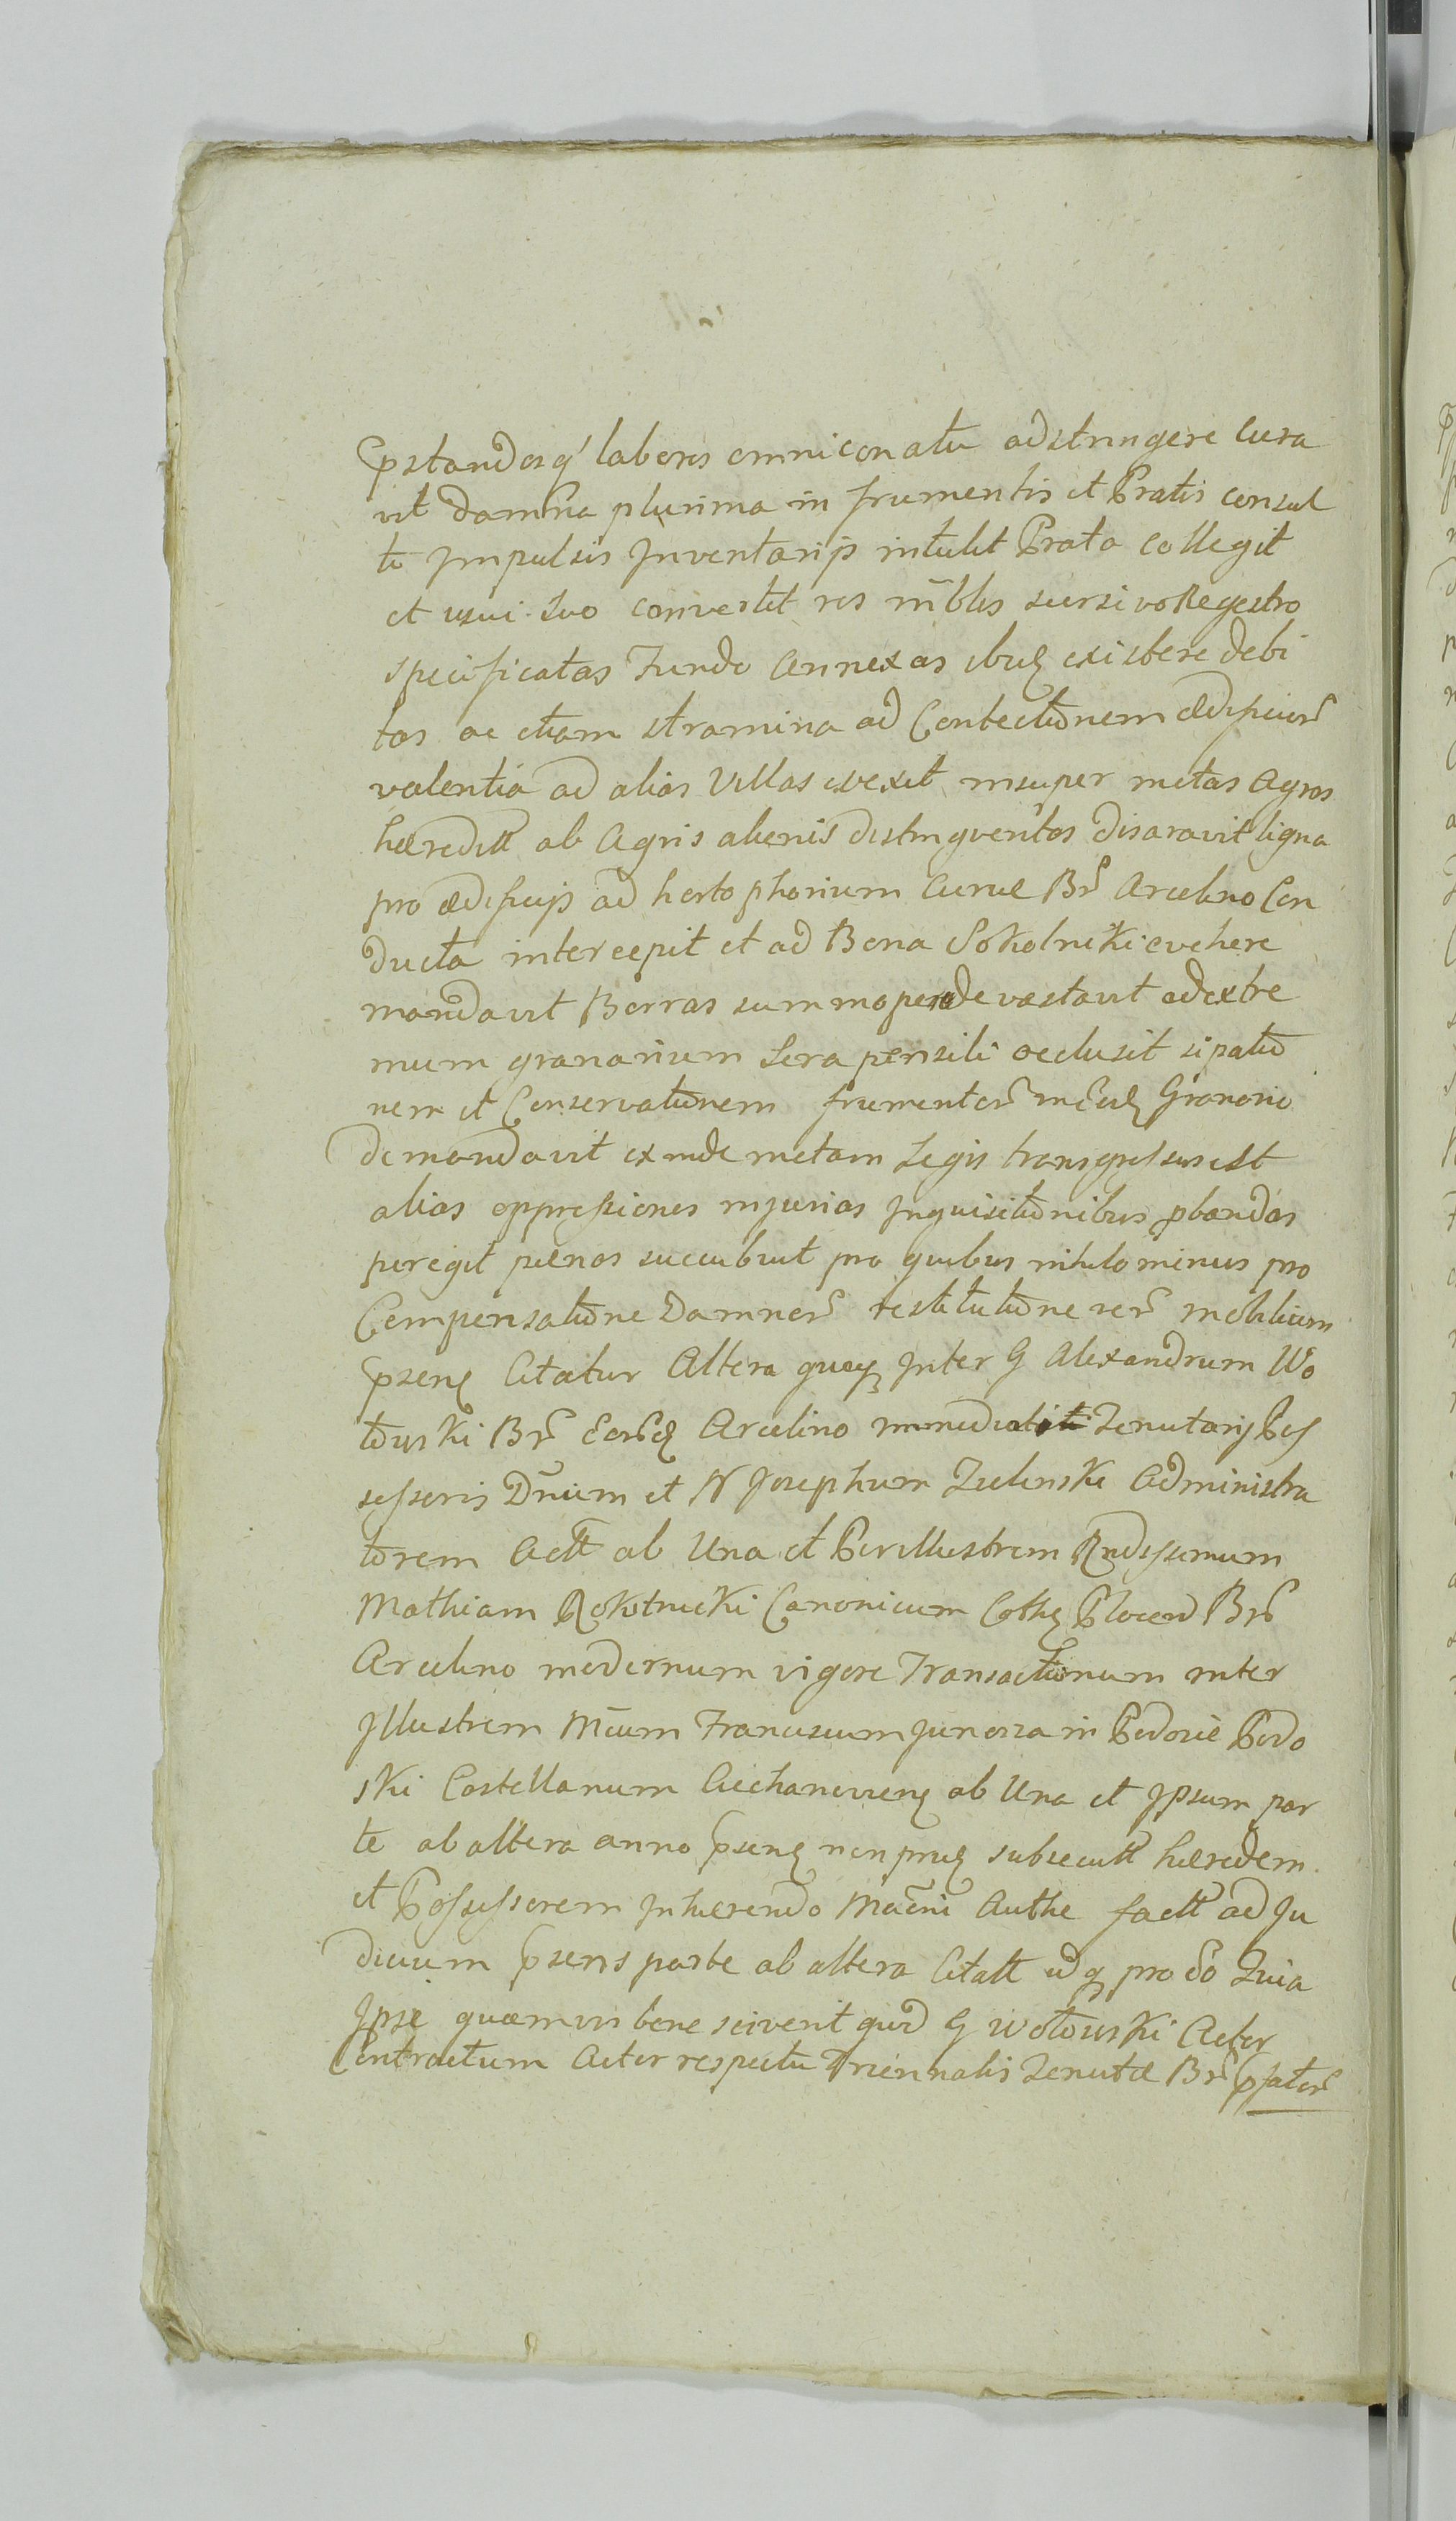 pstandosq labores omni conatu adstringere cura
vit damna plurima in frumentis et Pratis consul
to Impulsis Inventarijs intulit Prata collegit
et usui suo convertit res mbles sursivo Regestro
specificatas Fundo annexas ibid existere debi
tas ac etiam stramina ad Contectionem ædificior
valentia ad alias Villas evexit insuper metas Agros
hæreditt ab Agris alienis distingventes disaravit ligna
pro ædificijs ad hortophorium Curiæ Br Arcelino Con
ducta intercepit et ad Bona Sokolniki evehere
mandavit Borras summopere devastavit ad extre
mum granarium Sera pensili occlusit sipatio
nem et Conservationem frumentor in eod Granario
demandavit exinde metam Legis transgressus est
alias oppressiones injurias Inquisitionibus pbandas
peregit pænas succubuit pro quibus nihilominus pro
Compensatione Damnor restitutione rer mobilium
psens Citatur Altera quoq Inter G Alexandrum Wo
towski Br eord Arcelino immediat Tenutarij Pos
sessoris Dnum et N Josephum Zielinski Administra
torem Actt ab Una et Perillustrem Rndissimum
Mathiam Rokotnicki Canonicum Cathe Plocen Br
Arcelino modernum vigore Transactionum inter
Illustrem Mcum Franciscum Junosza in Podosie Podo
ski Castellanum Ciechanoviens ab Una et Ipsum par
te ab altera anno psens non prid subsecutt hæredem
et Possessorem Inhærendo Macni Authe factt ad Ju
dicium psens parte ab altera Citatt idq pro eo Quia
Ipse quamvis bene sciverit quod G Wotowski Actor
Contractum Actor respectu Triennalis Tenutæ Br pfator